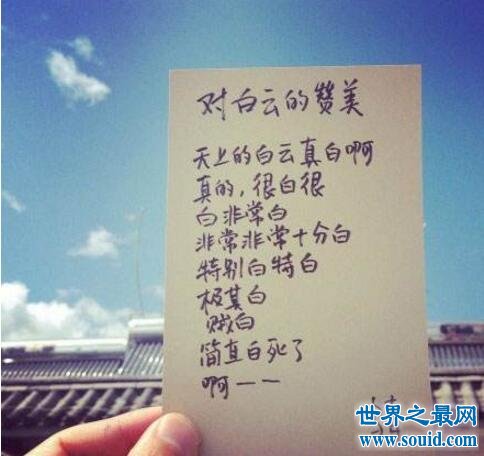 对白云的赞美
天上的白云真白啊
真的，很白很
白非常白
非常非常十分白
特别白特白
极其白
贼白
简直白死了
啊一一
世界之最网
www.souid.com